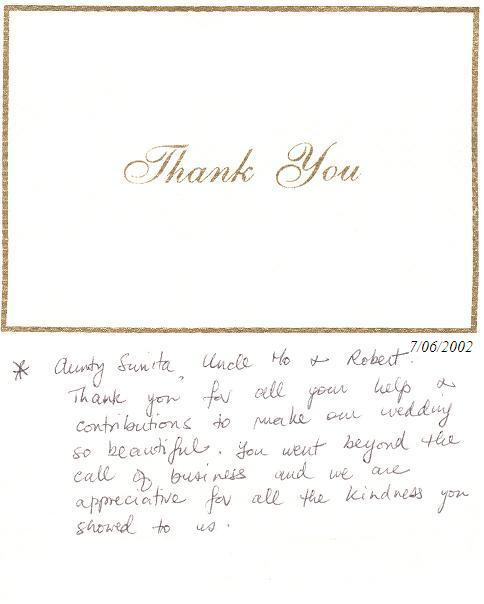 Thank You
7/06/2002
* Aunty Sunita, Uncle Mo & Robert.
Thank you for all your help &
contributions to make our wedding
so beautiful. You went beyond the
call of business and we are
appreciative for all the kindness you
showed to us.